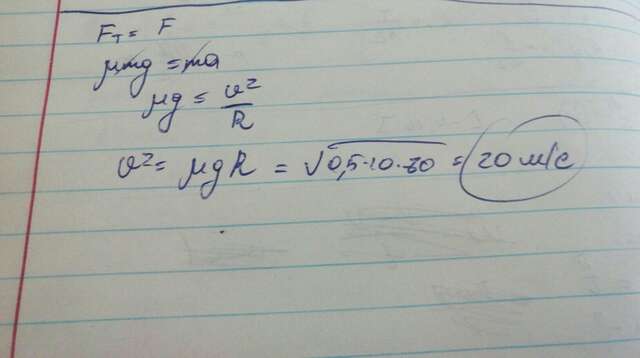 Fт = F
μmg = ma
μg = υ²/R
υ² = μgR = √0,5·10·80 = 20 м/с